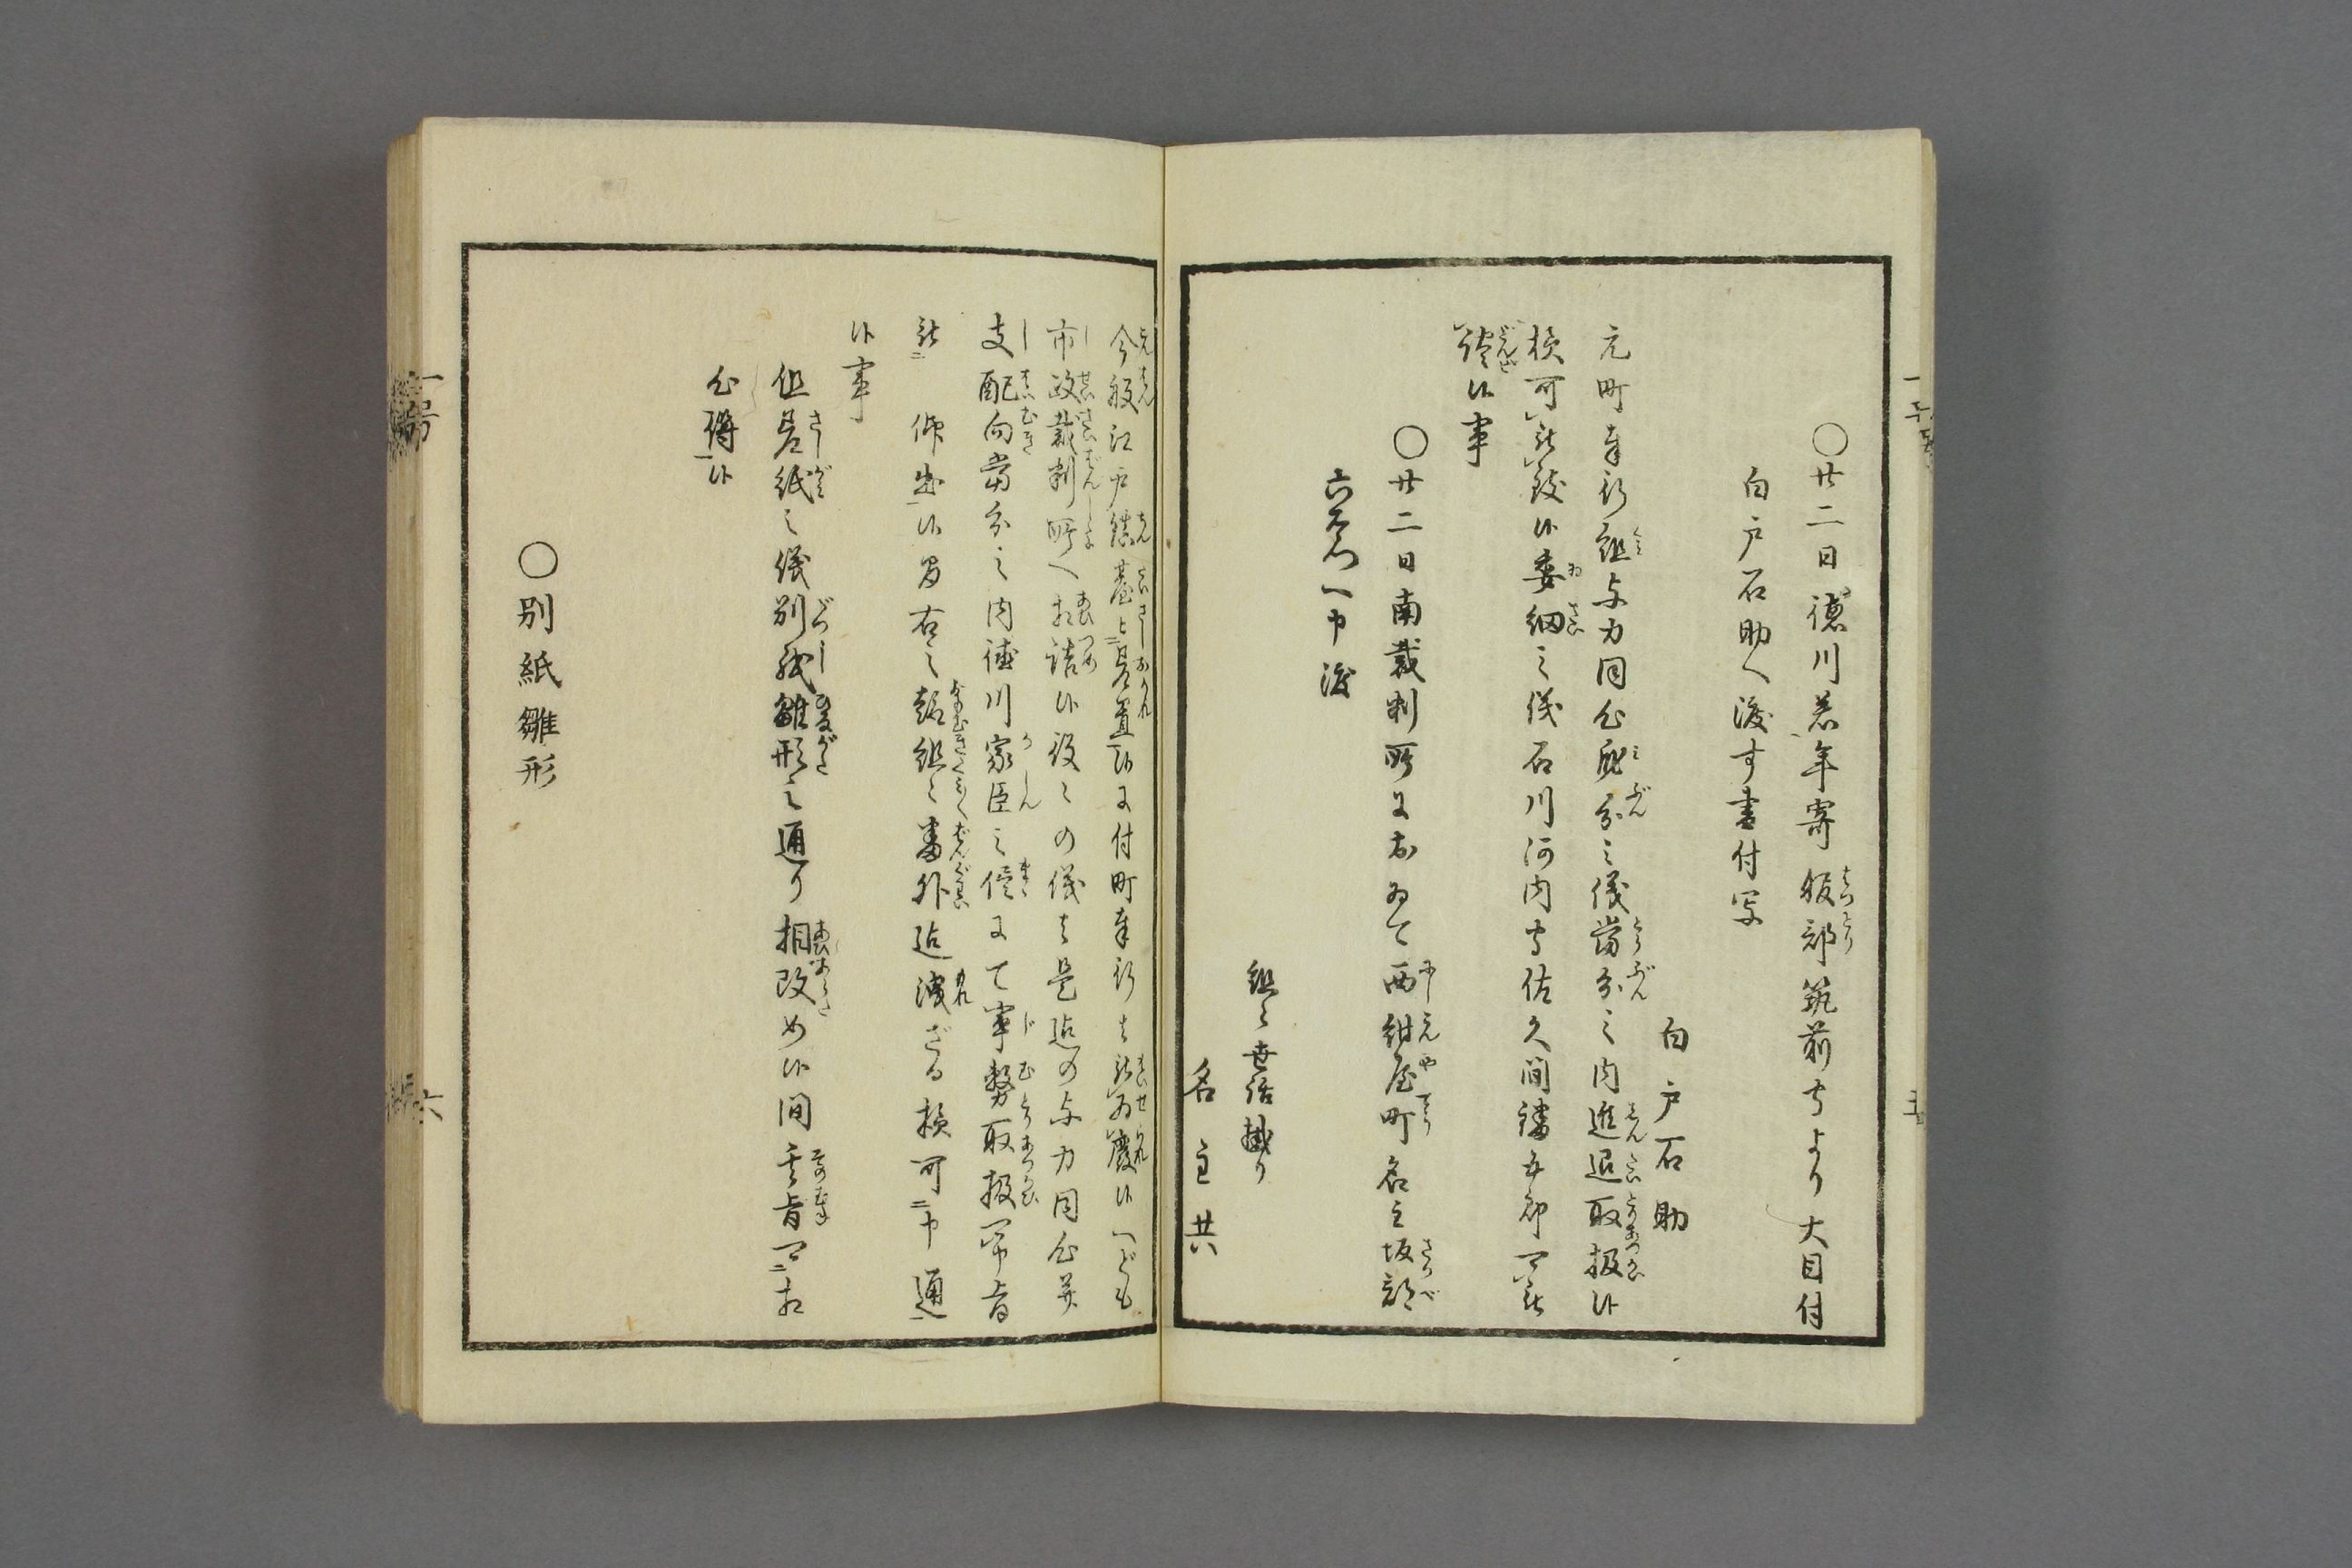 〇廿二日徳川君年寄服部筑前守より大目付
白戸石助へ渡す書付写
白戸石助
元町奉行組与力同心身分之儀当分之内進退取扱候
様可被致候委細之儀石川河内守佐久間鐇五郎可被
談候事
〇廿二日南裁判所におゐて西紺屋町名主坂部
六右衛門へ申渡
組々世話掛り
名主共
今般江戸鎮台被差置候に付町奉行は被為廃候へども
市政裁判所へ相詰候役々の儀は是迄の与力同心并
支配向当分之内徳川家臣之侭にて事務取扱可申旨
被仰出候間右之趣組々番外迄洩ざる様可申通
候事
但差紙之儀別紙雛形之通り相改め候間其旨可相
心得候
〇別紙雛形
六